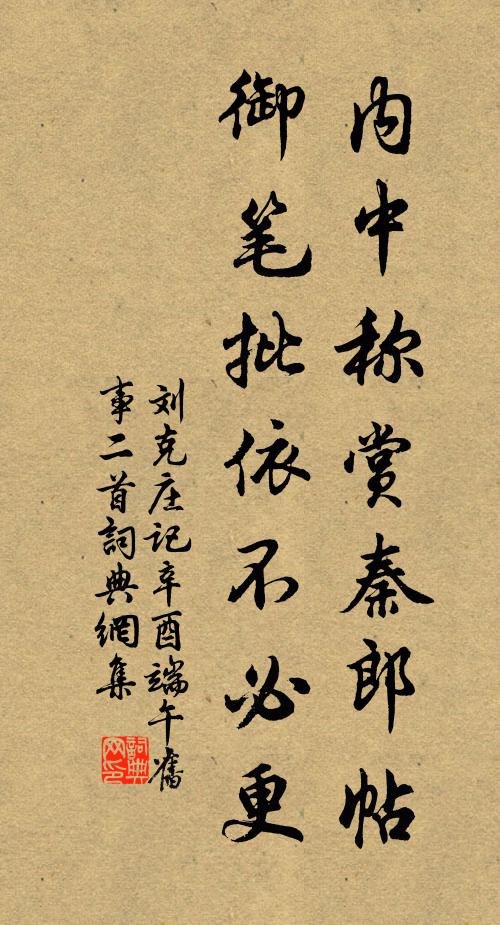 内中称赏秦郎帖
御笔批依不必更
刘克庄记辛酉端午舊
事二首詞典網集
詞典
网印